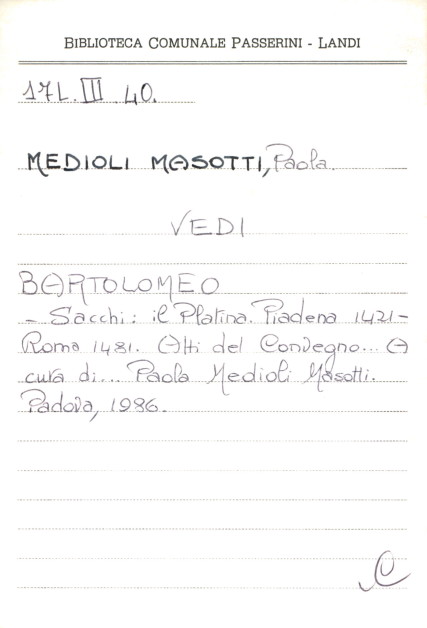 BIBLIOTECA COMUNALE PASSERINI - LANDI
17L. III 40.
MEDIOLI MASOTTI, Paola.
VEDI
BARTOLOMEO
- Sacchi: il Platina. Piadena 1421-
Roma 1481. Atti del Convegno... A
cura di... Paola Medioli Masotti.
Padova, 1986.
C